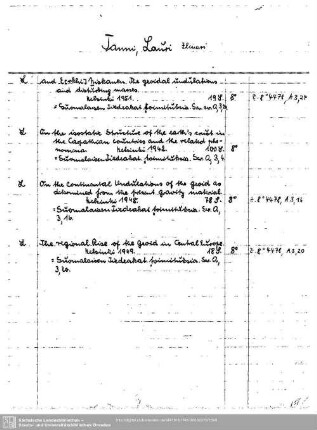 Tanni, Lauri Elmari
and Erkki Niskanen. The geoidal undulations
and disturbing masses.
Helsinki 1951. 19 S. 8° Z. 8° 4478, A 3, 24
= Suomalaisen Tiedeakat. toimituksia. Ser. A, 3,
On the isostatic structure of the earth's crust in
the Carpathian countries and the related phe-
nomena. Helsinki 1942. 100 S. 8°
= Suomalaisen Tiedeakat. toimituksia. Ser. A, 3, 4
On the continental Undulations of the Geoid as
determined from the present gravity material.
Helsinki 1948. 78 S. 8° Z. 8° 4478, A 3, 16
= Suomalaisen Tiedeakat. toimituksia. Ser. A,
3, 16.
The regional Rise of the Geoid in Central Europe.
Helsinki 1949. 18 S. 8° Z. 8° 4478, A 3, 20
= Suomalaisen Tiedeakat. toimituksia. Ser. A,
3, 20.